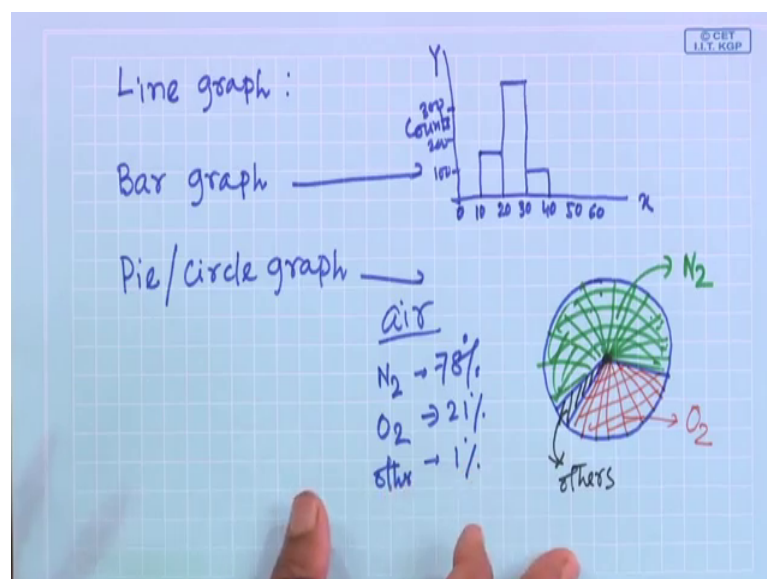 © CET
I.I.T. KGP
Line graph :
Y
300
Counts
200
100
0 10 20 30 40 50 60 x
Bar graph
Pie/circle graph
air
N2 → 78%
O2 → 21%
othr → 1%
N2
O2
others